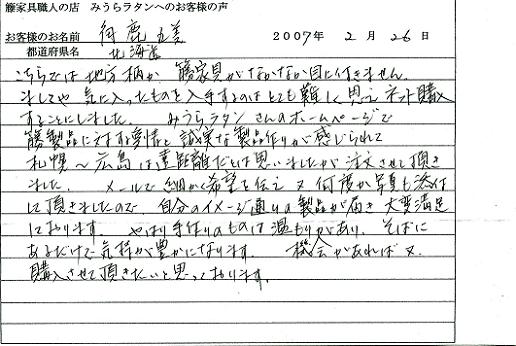 籐家具職人の店 みうらラタンへのお客様の声
お客様のお名前 角鹿 五美 2007年 2月 26日
都道府県名 北海道
こちらでは地方柄か 籐家具がなかなか目に付きません。
ましてや 気に入ったものを入手するのはとても難しく思え ネット購入
することにしました。 みうらラタンさんのホームページで
籐製品に対する愛情と 誠実な製品作りが感じられて
札幌〜広島は遠距離だとは思いましたが注文させて頂き
ました。 メールで細かく希望を伝え 又 何度か写真も添付
して頂きましたので 自分のイメージ通りの製品が届き 大変満足
しております。 やはり手作りのものは温もりがあり、そばに
あるだけで気持が豊かになります。 機会があれば又
購入させて頂きたいと思っております。